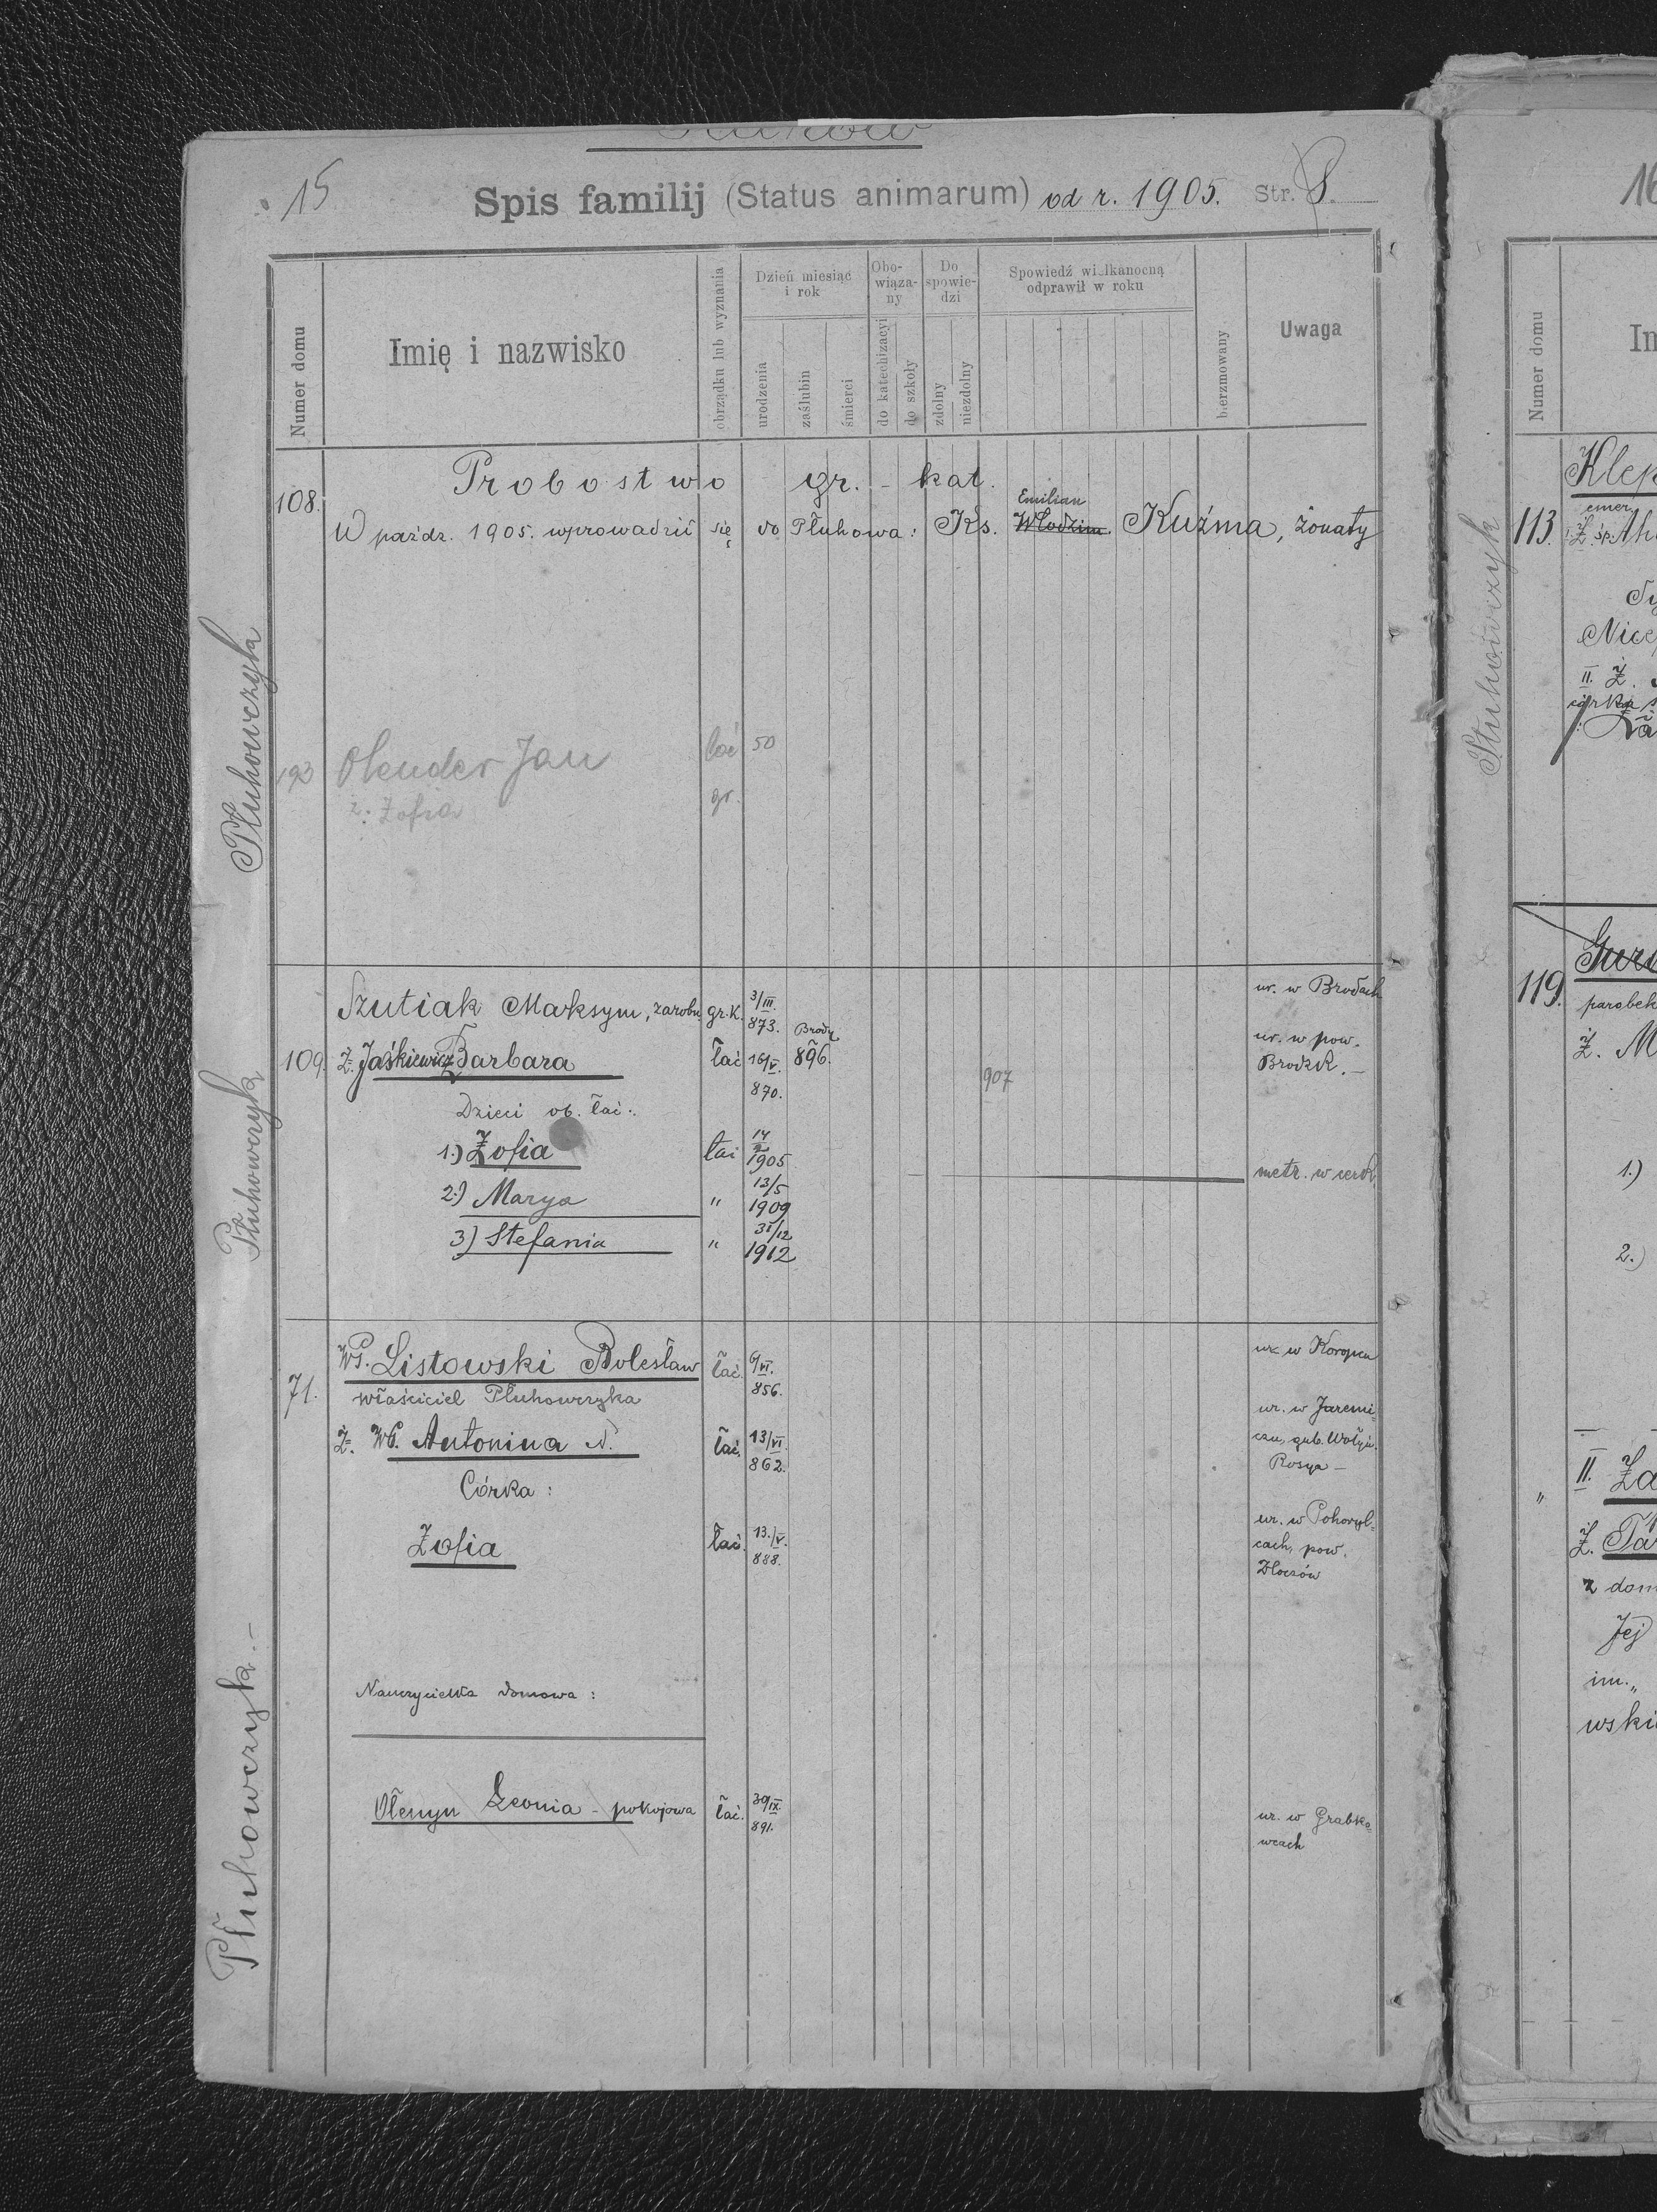 15
Spis familij (Status animarum) od r. 1905. Str. 8.
Numer domu
Imię i nazwisko
obrządku lub wyznania
Dzień miesiąc i rok
urodzenia
zaślubin
śmierci
Obo-wiąza-ny
do katechizacyi
do szkoły
Do spowie-dzi
zdolny
niezdolny
Spowiedź wielkanocną odprawił w roku
bierzmowany
Uwaga
Płuhowczyk
108. Probostwo gr. - kat.
Emilian
W paźdz. 1905. wprowadził się do Płuhowa: Ks. Włodzim. Kuźma, żonaty
193 Olender Jan łać 50
ż: Zofia gr.
Płuhowczyk
Szutiak Maksym, zarobn. gr.K. 3/III. 873. ur. w Brodach
109. Ż. Jaśkiewicz Barbara łać 16/V. 870. Brody 896. 907 ur. w pow. Brodzk. –
Dzieci ob. łać:
1.) Zofia łać 14 1905 metr. w cerk.
2.) Marya " 13/5 1909
3.) Stefania " 31/12 1912
Płuhowczyk. –
71. WP. Listowski Bolesław łać. 6/VI. 856. ur. w Koropcu
właściciel Płuhowczyka
Ż. WP. Antonina N. łać. 13/VI. 862. ur. w Jaremi-
czu, gub. Wołyń.
Rosya –
Córka:
Zofia łać. 13./V. 888. ur. w Pohoryl-
cach, pow.
Złoczów
Nauczycielka domowa:
Ołenyn Leonia – pokojowa łać. 30/IX. 891. ur. w Grabko-
wcach
16
Numer domu
Płuhowczyk
113.
emer.
Ż. śp.
II. Ż.
córka
119.
parobek
Ż. M
1.)
2.)
" II.
Ż.
z dom
Jej
im. "